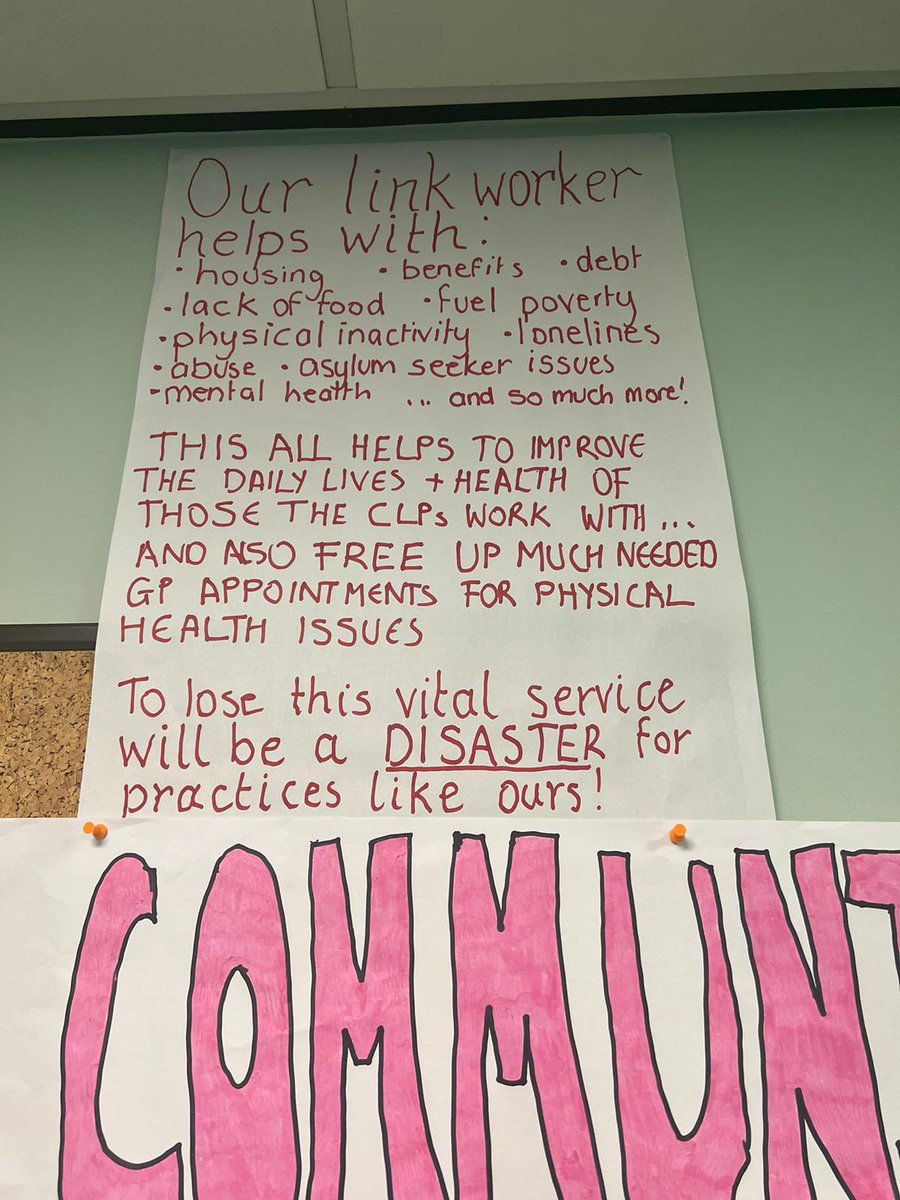 Our link worker
helps with:
• housing • benefits • debt
• lack of food • fuel poverty
• physical inactivity • lonelines
• abuse • asylum seeker issues
• mental health ... and so much more!
THIS ALL HELPS TO IMPROVE
THE DAILY LIVES + HEALTH OF
THOSE THE CLPs WORK WITH ...
AND ALSO FREE UP MUCH NEEDED
GP APPOINTMENTS FOR PHYSICAL
HEALTH ISSUES
To lose this vital service
will be a DISASTER for
practices like ours!
COMMUN